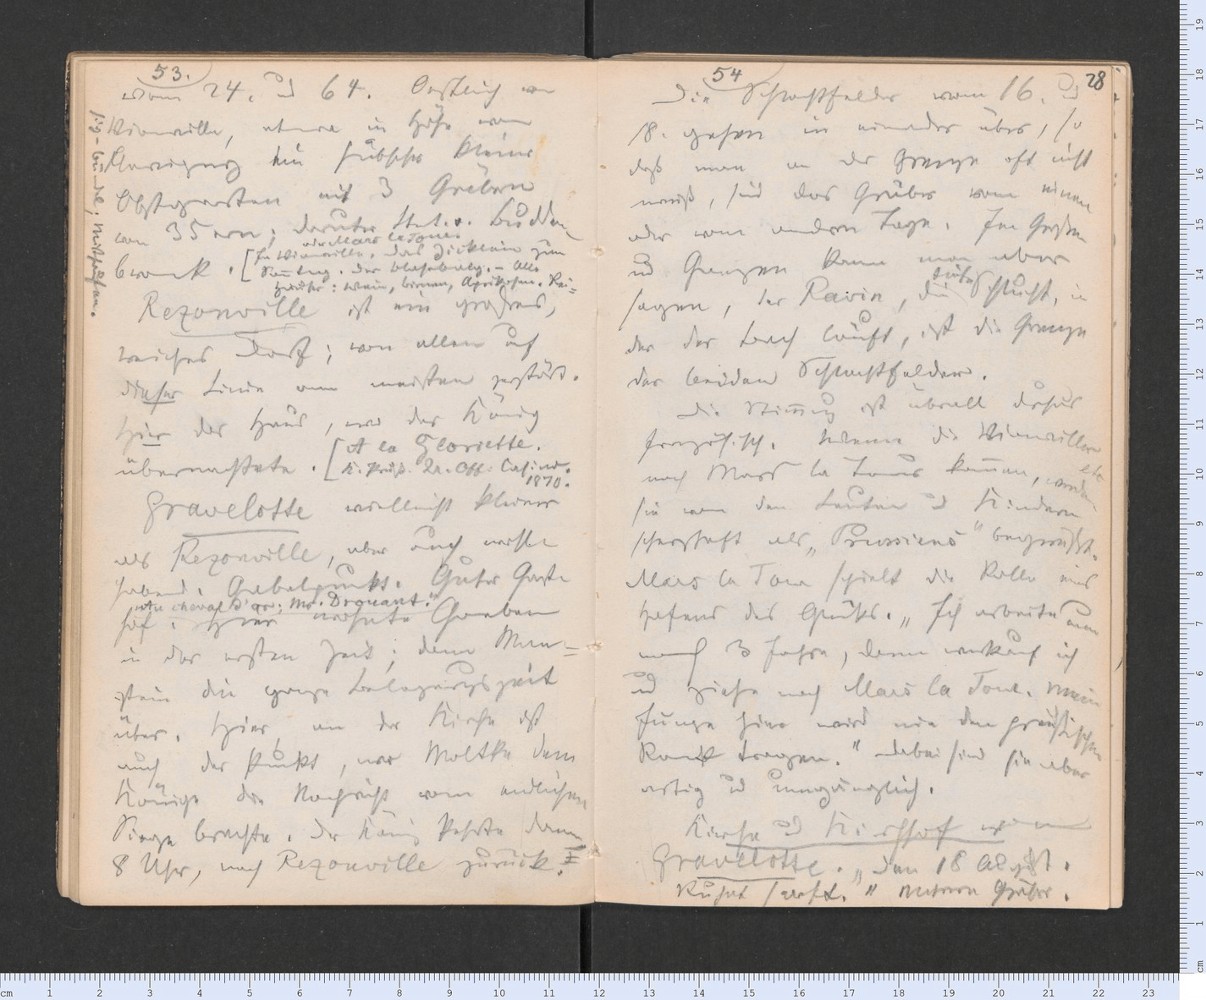 53.
vom 24. und 64. Oestlich von
Vionville, etwa in Höhe von
Flavigny ein hübscher kleiner
Obstgarten mit 3 Gräbern
von 35ern; darunter v. Budden
brock. [In Vionville. das Zicklein zum
oder Mars la Tour
Sonntag. Der Blasebalg. – Alle
Früchte: Wein, Birnen, Aprikosen. Rei=
Rezonville ist ein großes,
reiches Dorf; von allen auf
dieser Linie am meisten zerstört.
Hier das Haus, wo der König
übernachtete. [A la Gloriette.
K. Preuß. Off. Casino.
1870.
Gravelotte vielleicht kleiner
als Rezonville, aber auch wohl
habend. Gabelpunkt. Guter Gast-
„au cheval d'or: Mr. Droguant."
hof. Hier wohnte Goeben
in der ersten Zeit; dann Man=
stein die ganze Belagerungszeit
über. Hier, an der Kirche ist
auch der Punkt, wo Moltke dem
Könige die Nachricht vom endlichen
Siege brachte. Der König kehrte dann
8 Uhr, nach Rezonville zurück.
54
28
Die Schlachtfelder vom 16. und
18. gehen in einander über, so
daß man an der Grenze oft nicht
weiß, sind das Gräber vom einen
oder vom andern Tage. Im Großen
und Ganzen kann man aber
sagen, der Ravin, die tiefe Schlucht, in
der der Bach läuft, ist die Grenze
der beiden Schlachtfelder.
Die Stimmung ist überall
französisch. Wenn die Vionviller
nach Mars la Tour kommen, werden
sie von den Leuten und Kindern
scherzhaft als „Prussiens" begrüßt.
Mars la Tour spielt die Rolle eines
Hafens des Glücks. „Ich arbeite nun
noch 3 Jahre, dann verkauf ich
und ziehe nach Mars la Tour. Mein
Junge hier wird nie den preußischen
Rock tragen." Dabei sind sie aber
artig und umgänglich.
Kirche und Kirchhof von
Gravelotte. „Den 18 August.
Ruhet sanft." Mehrere Gräber.